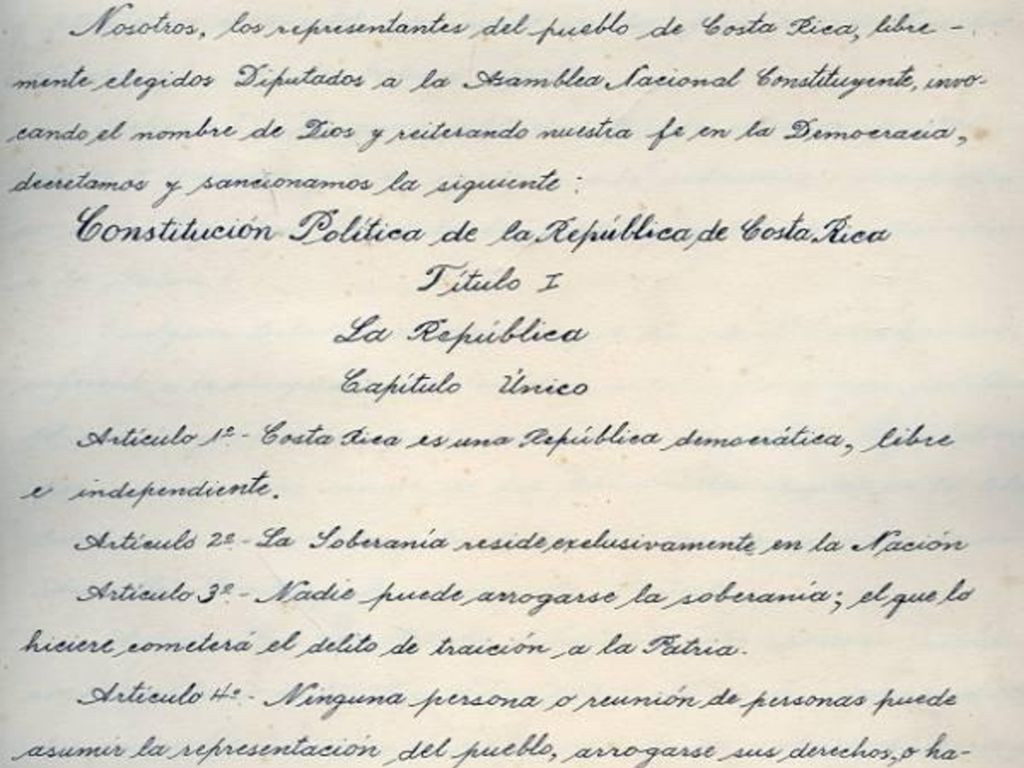 Nosotros, los representantes del pueblo de Costa Rica, libre-
mente elegidos Diputados a la Asamblea Nacional Constituyente, invo-
cando el nombre de Dios y reiterando nuestra fe en la Democracia,
decretamos y sancionamos la siguiente:
Constitución Política de la República de Costa Rica
Título I
La República
Capítulo Único
Artículo 1º- Costa Rica es una República democrática, libre
e independiente.
Artículo 2º- La Soberanía reside exclusivamente en la Nación
Artículo 3º- Nadie puede arrogarse la soberanía; el que lo
hiciere cometerá el delito de traición a la Patria.
Artículo 4º- Ninguna persona o reunión de personas puede
asumir la representación del pueblo, arrogarse sus derechos, o ha-